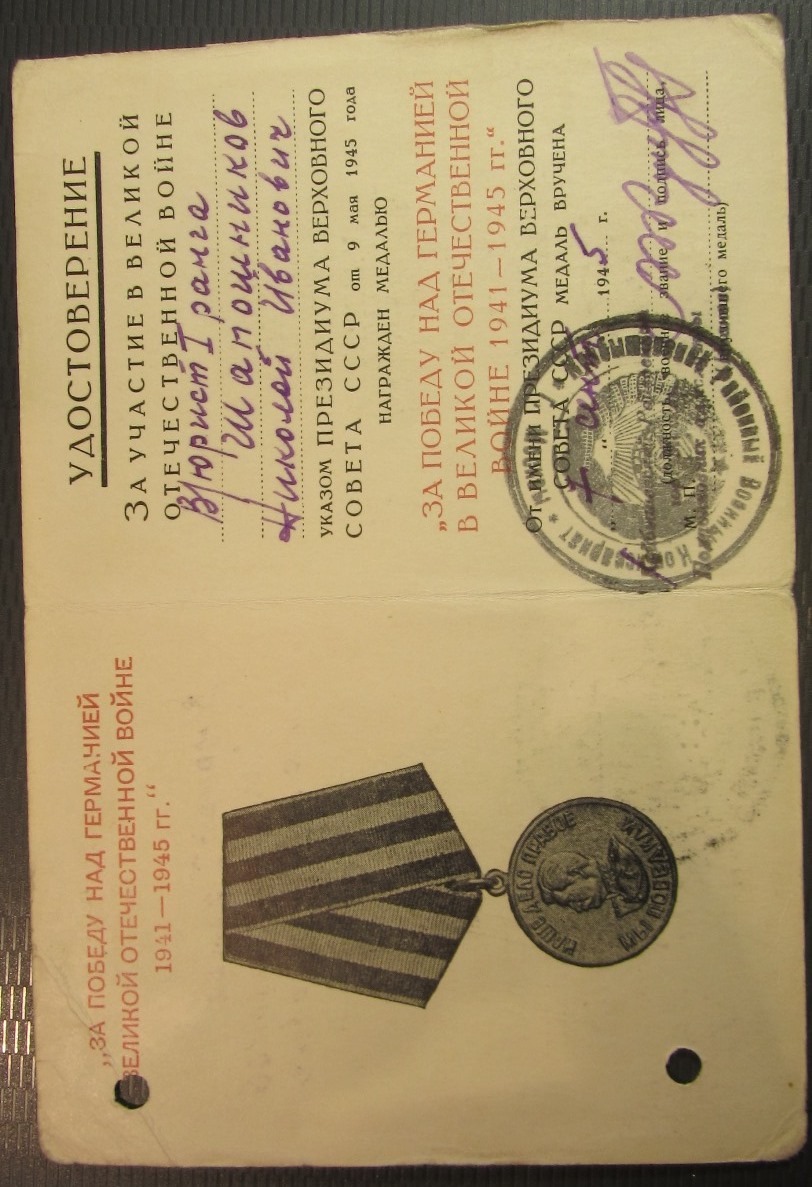 „ЗА ПОБЕДУ НАД ГЕРМАНИЕЙ
В ВЕЛИКОЙ ОТЕЧЕСТВЕННОЙ ВОЙНЕ
1941—1945 гг.“
НАШЕ ДЕЛО ПРАВОЕ
МЫ ПОБЕДИЛИ
УДОСТОВЕРЕНИЕ
ЗА УЧАСТИЕ В ВЕЛИКОЙ
ОТЕЧЕСТВЕННОЙ ВОЙНЕ
В/юрист I ранга
Шапошников
Николай Иванович
УКАЗОМ ПРЕЗИДИУМА ВЕРХОВНОГО
СОВЕТА СССР от 9 мая 1945 года
НАГРАЖДЕН МЕДАЛЬЮ
„ЗА ПОБЕДУ НАД ГЕРМАНИЕЙ
В ВЕЛИКОЙ ОТЕЧЕСТВЕННОЙ
ВОЙНЕ 1941—1945 гг.“
ОТ ИМЕНИ ПРЕЗИДИУМА ВЕРХОВНОГО
СОВЕТА СССР МЕДАЛЬ ВРУЧЕНА
1945 г.
М. П. (должность, военное звание и подпись лица,
вручившего медаль)
Районный Военный Комиссариат